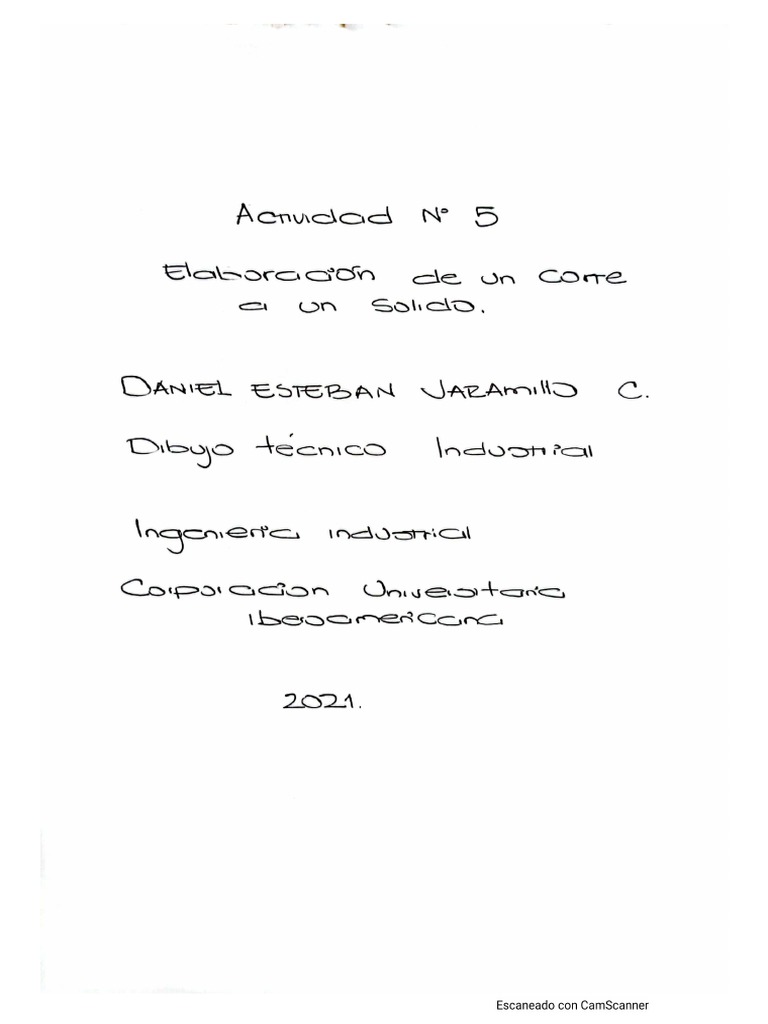 Actividad N° 5
Elaboración de un corte
a un Solido.
DANIEL ESTEBAN JARAMIllO C.
Dibujo técnico Industrial
Ingenieria industrial
Corporacion Universitaria
iberoamericana
2021.
Escaneado con CamScanner